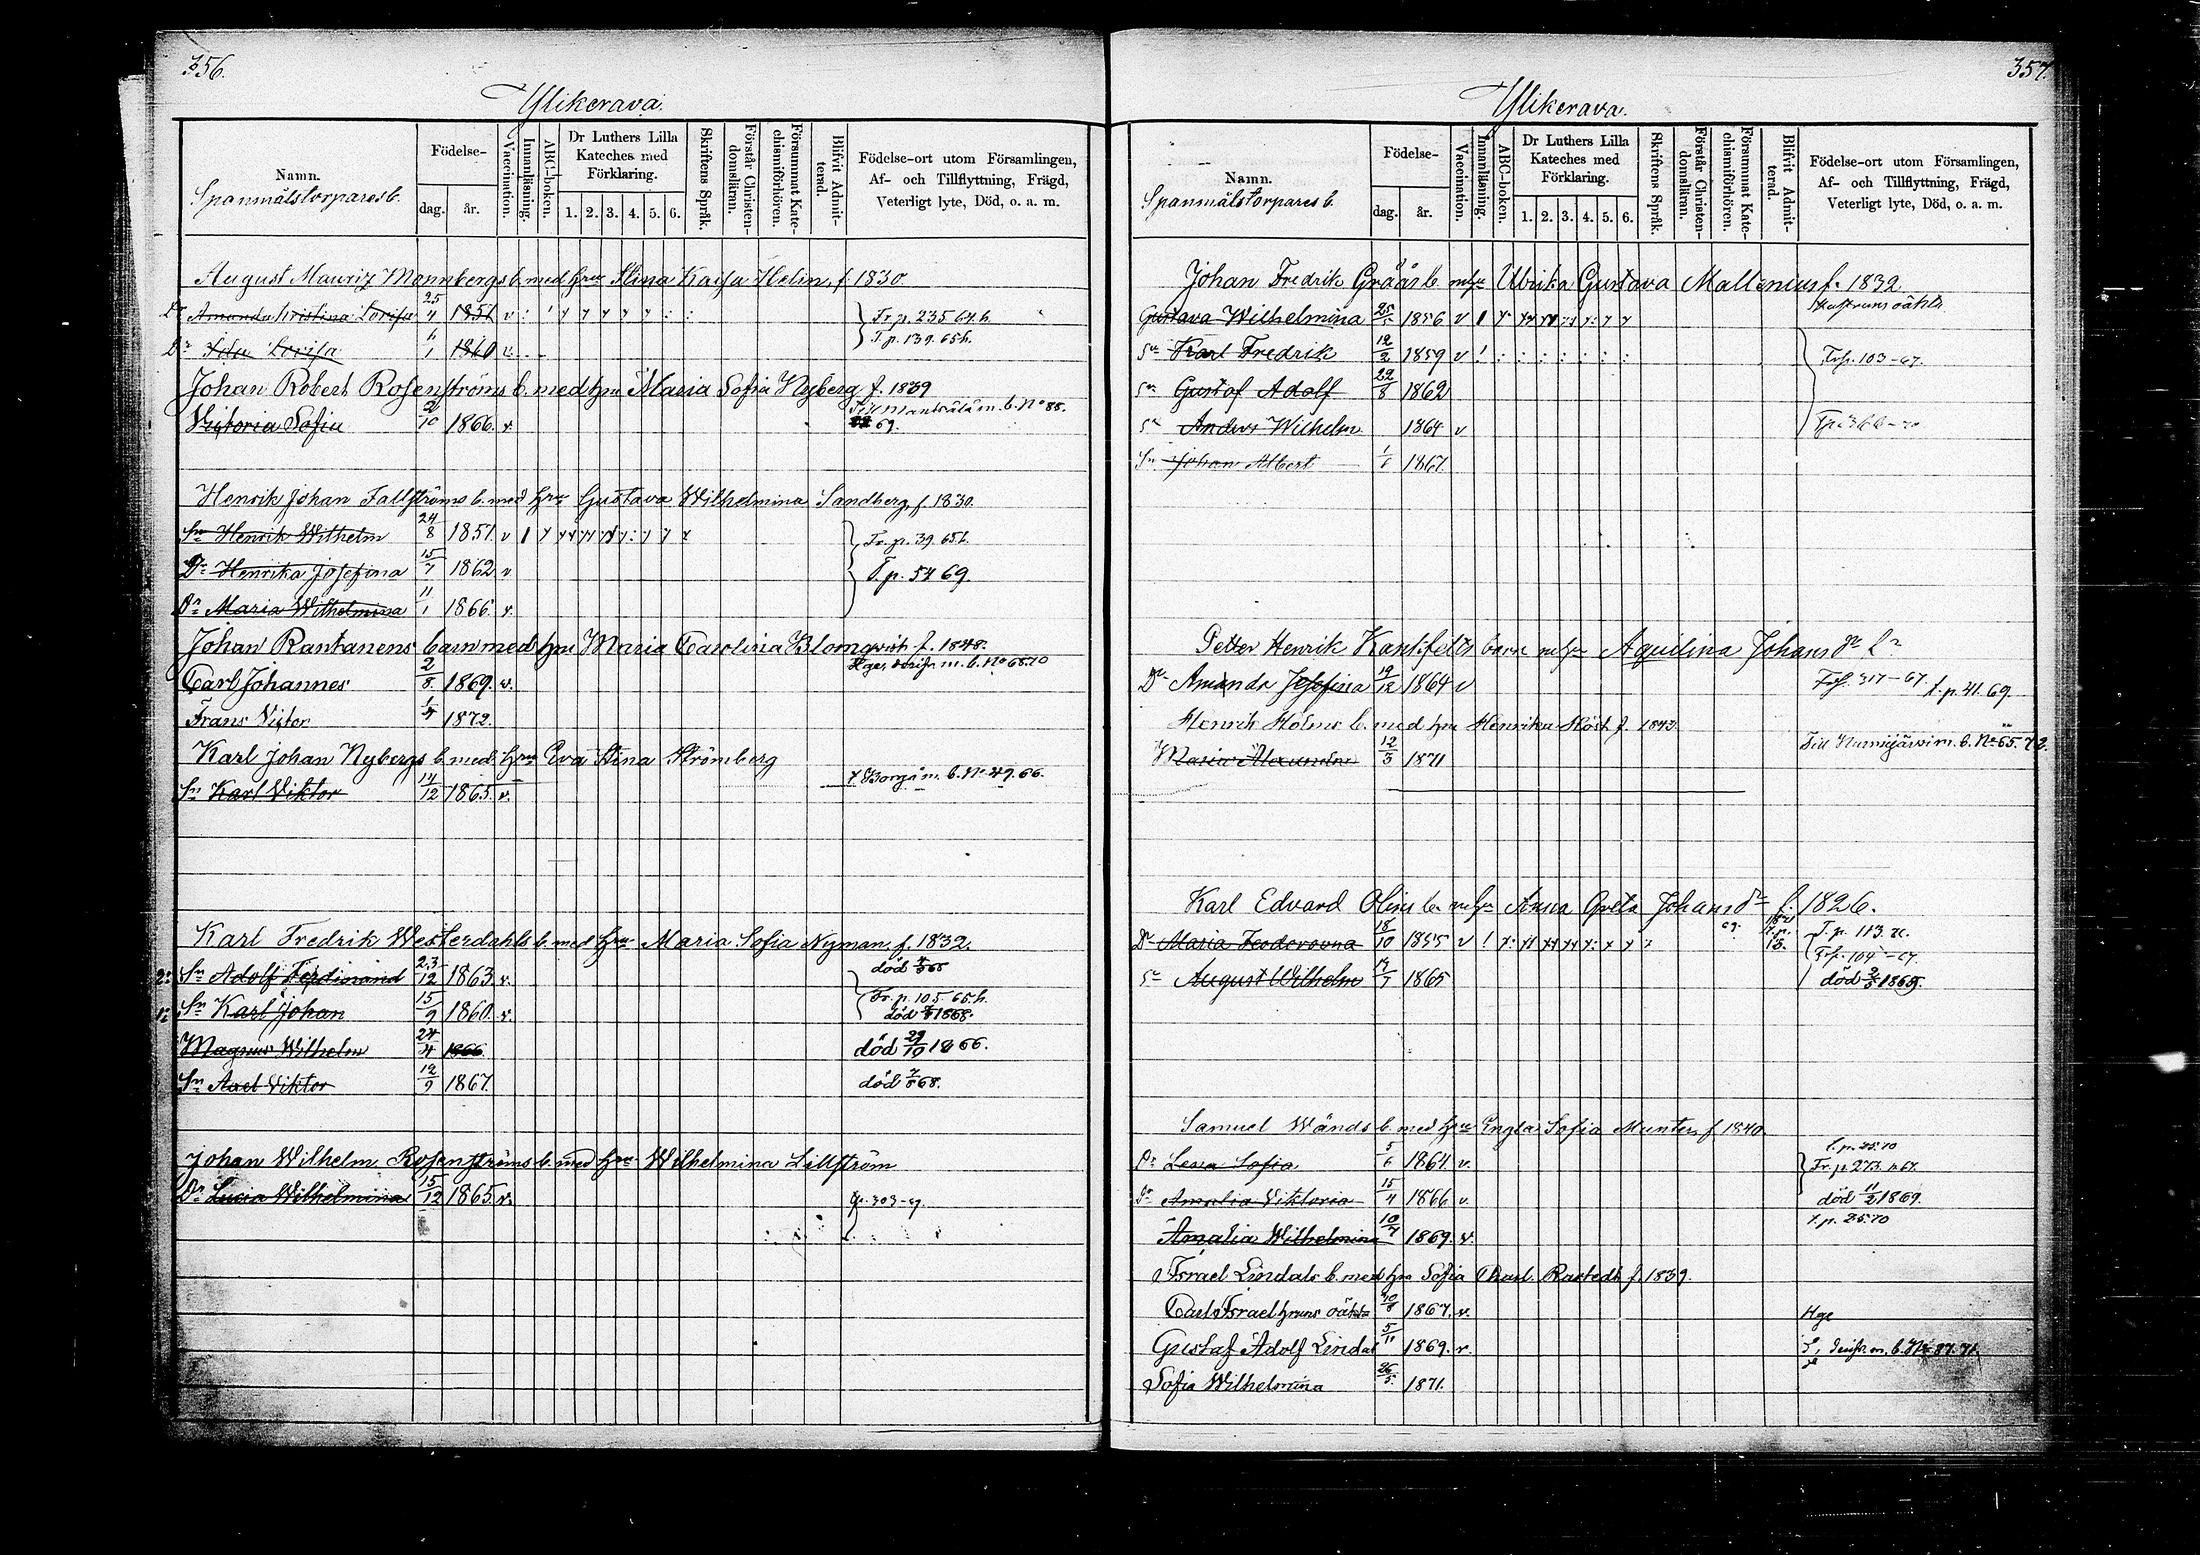 356.
Ylikerava.
Namn.
Spanmålstorpares b.
Födelse-
dag. år.
Vaccination.
Innanläsning.
ABC-boken.
Dr Luthers Lilla Kateches med Förklaring.
1. 2. 3. 4. 5. 6.
Skriftens Språk.
Förstår Christendomsläran.
Försummat Katechismiförhören.
Blifvit Admitterad.
Födelse-ort utom Församlingen,
Af- och Tillflyttning, Frägd,
Veterligt lyte, Död, o. a. m.
August Mauritz Mannbergs b. med hru Stina Kaisa Helin, f. 1830
Dr Amanda Kristina Lovisa 25/4 1851 v Fr. p. 235 64. h.
Dr Ida Lovisa 1860 v. T. p. 139. 65 h.
Johan Robert Rosenströms b. med hru Maria Sofia Nyberg f. 1839
Victoria Sofia 2/10 1866. v. Till Mäntsälä m. b. No 88. 69.
Henrik Johan Fallströms b. med hru Gustava Wilhelmina Sandberg, f. 1830.
Sn Henrik Wilhelm 24/8 1851. v Fr. p. 39. 65 h.
Dr Henrika Josefina 15/7 1862 v T. p. 54 69.
Dr Maria Wilhelmina 11/1 1866. v.
Johan Rantanens barn med hru Maria Carolina Blomqvist f. 1848.
Carl Johannes 2/8. 1869. v. m. b. No 68. 70
Frans Victor 1872.
Karl Johan Nybergs b. med hru Eva Stina Strömberg
Sn Karl Viktor 14/12 1865. v. f. Borgå m. b. No 49. 66.
Karl Fredrik Westerdahls b. med hru Maria Sofia Nyman, f. 1832.
2: Sn Adolf Ferdinand 23/12 1863. v. död
1: Sn Karl Johan 15/9 1860. v. Fr. p. 105. 65. h. död 1868.
Magnus Wilhelm 24/4 1866 död 29/10 1866.
Sn Axel Viktor 12/9 1867. död 68.
Johan Wilhelm Rosenströms b. med hru Wilhelmina Lillström
Dr Lucia Wilhelmina 15/12 1865. v. 303-67.
357.
Ylikerava.
Namn.
Spanmålstorpares b.
Födelse-
dag. år.
Vaccination.
Innanläsning.
ABC-boken.
Dr Luthers Lilla Kateches med Förklaring.
1. 2. 3. 4. 5. 6.
Skriftens Språk.
Förstår Christendomsläran.
Försummat Katechismiförhören.
Blifvit Admitterad.
Födelse-ort utom Församlingen,
Af- och Tillflyttning, Frägd,
Veterligt lyte, Död, o. a. m.
Johan Fredrik Gråås b. m hru Ulrika Gustava Mallenius f. 1832
Gustava Wilhelmina 25/5 1856 v hustruns oäkta
Sn Karl Fredrik 12/2 1859 v Frp. 103-67.
Sn Gustof Adolf 22/8 1862
Sn Anders Wilhelm 1864 v Tp 366-70
Sn Johan Albert 1867.
Petter Henrik Kankfelts barn m hru Aquilina Johansdr
Dr Amanda Josefina 19/12 1864 v Frp. 317-67. t. p. 41. 69.
Henrik Holms b. med hru Henrika Sköst f. 1843
Maria Alexandra 12/3 1871 Till Nurmijärvi m. b. No 65. 72.
Karl Edvard Olins b. m hru Anna Greta Johansdr f. 1826.
Dr Maria Feodorovna 18/10 1855 v T. p. 113. 70. Frp. 109-67.
Sn August Wilhelm 1865 död 1869.
Samuel Wånds b. med hru Engla Sofia Munter, f. 1840.
Dr Lena Sofia 5/6 1864. v. t. p. 25. 70 Fr. p. 273. 67.
Dr Amalia Viktoria 15/4 1866 v. död 11/2 1869.
Amalia Wilhelmina 10/7 1869. v. t. p. 25. 70
Israel Lindals b. med hru Sofia Charl. Rastedt f. 1839.
Carl Israel hruns oäkta 1867. v.
Gustaf Adolf Lindal 5/11 1869. v. m. b. No 87. 71.
Sofia Wilhelmina 26/5. 1871.